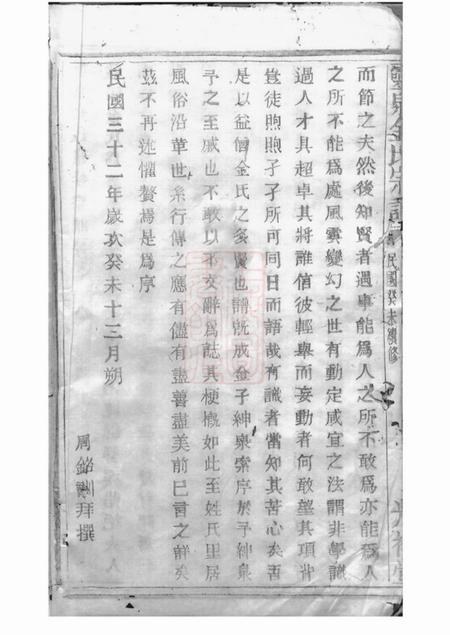 金氏宗譜
民國癸未續修
而節之夫然後知賢者遇事能爲人之所不敢爲亦能爲人
之所不能爲處風雲變幻之世有動定咸宜之法謂非學識
過人才具超卓其將誰信彼輕舉而妄動者何敢望其項背
豈徒煦煦孑孑所可同日而語哉有識者當知其苦心矣吾
是以益信金氏之多賢也譜既成金子紳泉索序於予紳泉
予之至戚也不敢以不文辭爲誌其梗慨如此至姓氏里居
風俗沿革世系行傳之應有儘有盡善盡美前已言之詳矣
茲不再述懼贅焉是爲序
民國三十二年歲次癸未十三月朔
周銘訓拜撰